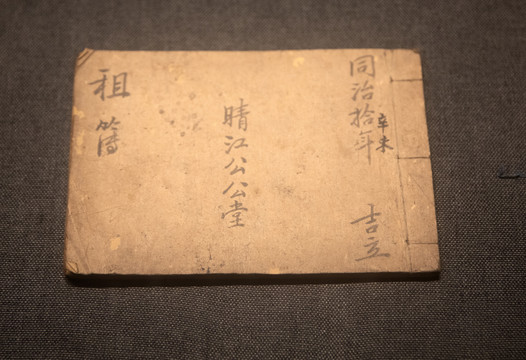 同治拾年辛未 吉立
晴江公公堂
租簿